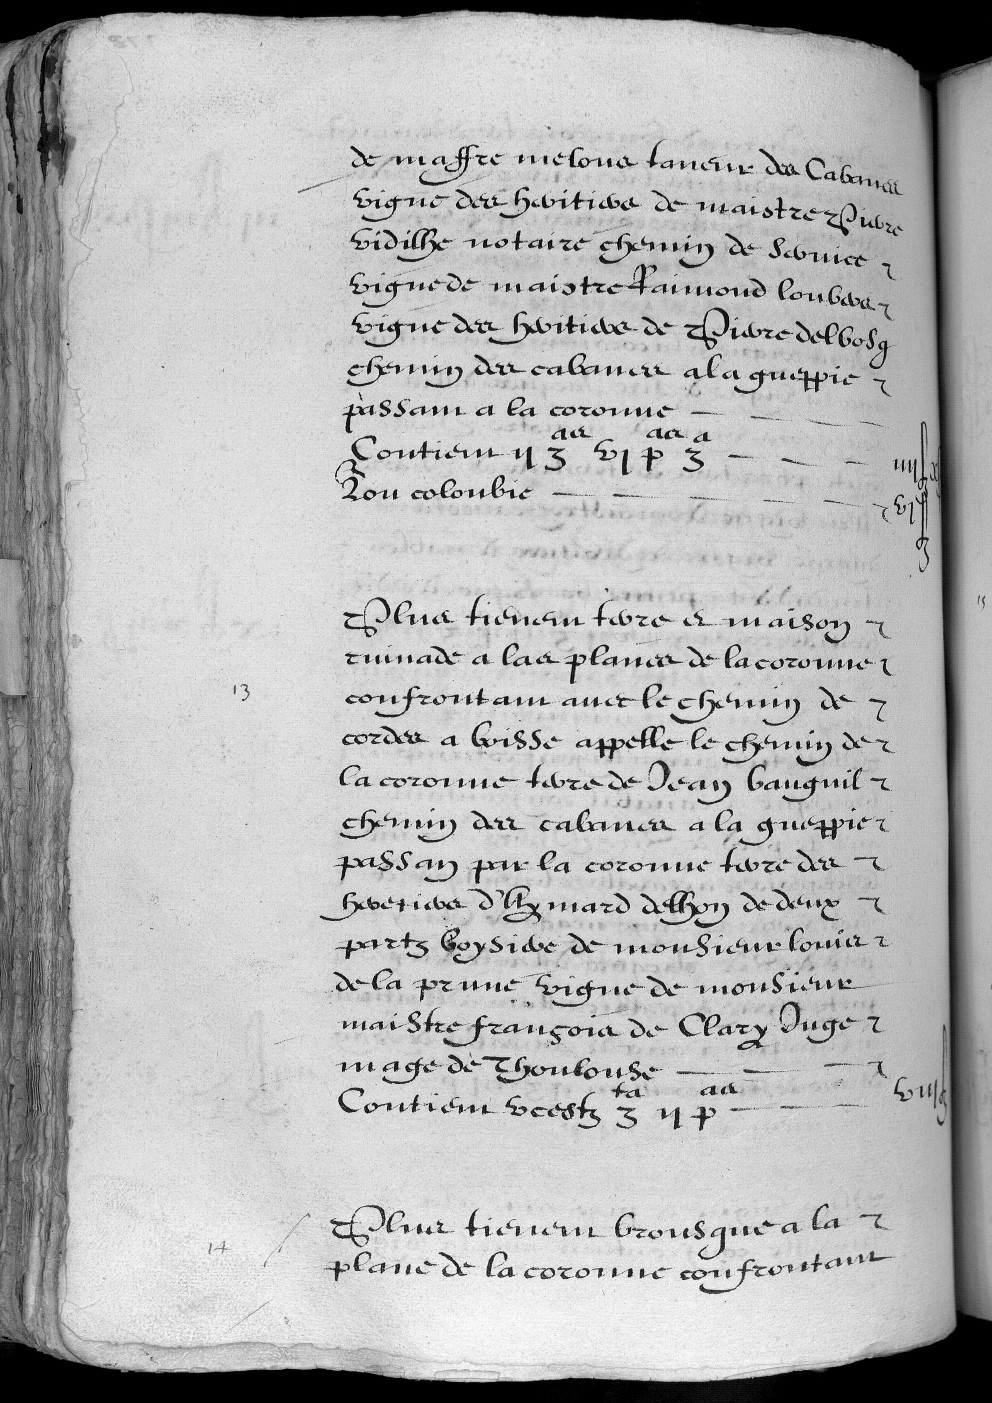 de maffre melous taneur des Cabanes
vigne des heritiers de maistre Pierre
vidilhe notaire chemin de
vigne de maistre Raimond loubers
vigne des heritiers de Pierre delbosq
chemin des cabanes a la gueppie
passant a la coronne
Contient ij 3 vj p 3
Lou colonbie
Plus tienent terre et maison
ruinade a las planes de la coronne
confrontant avec le chemin de
cordes a boisse appelle le chemin de
la coronne terre de Jean bauguil
chemin des cabanes a la gueppie
passan par la coronne terre des
heretiers d'Aymard de deux
partz boysiere de monsieur louis
de la prune vigne de monsieur
maistre françois de Clary Juge
mage de Thoulouse
Contient 3 ij p
Plus tienent brousque a la
plane de la coronne confrontant
13
14